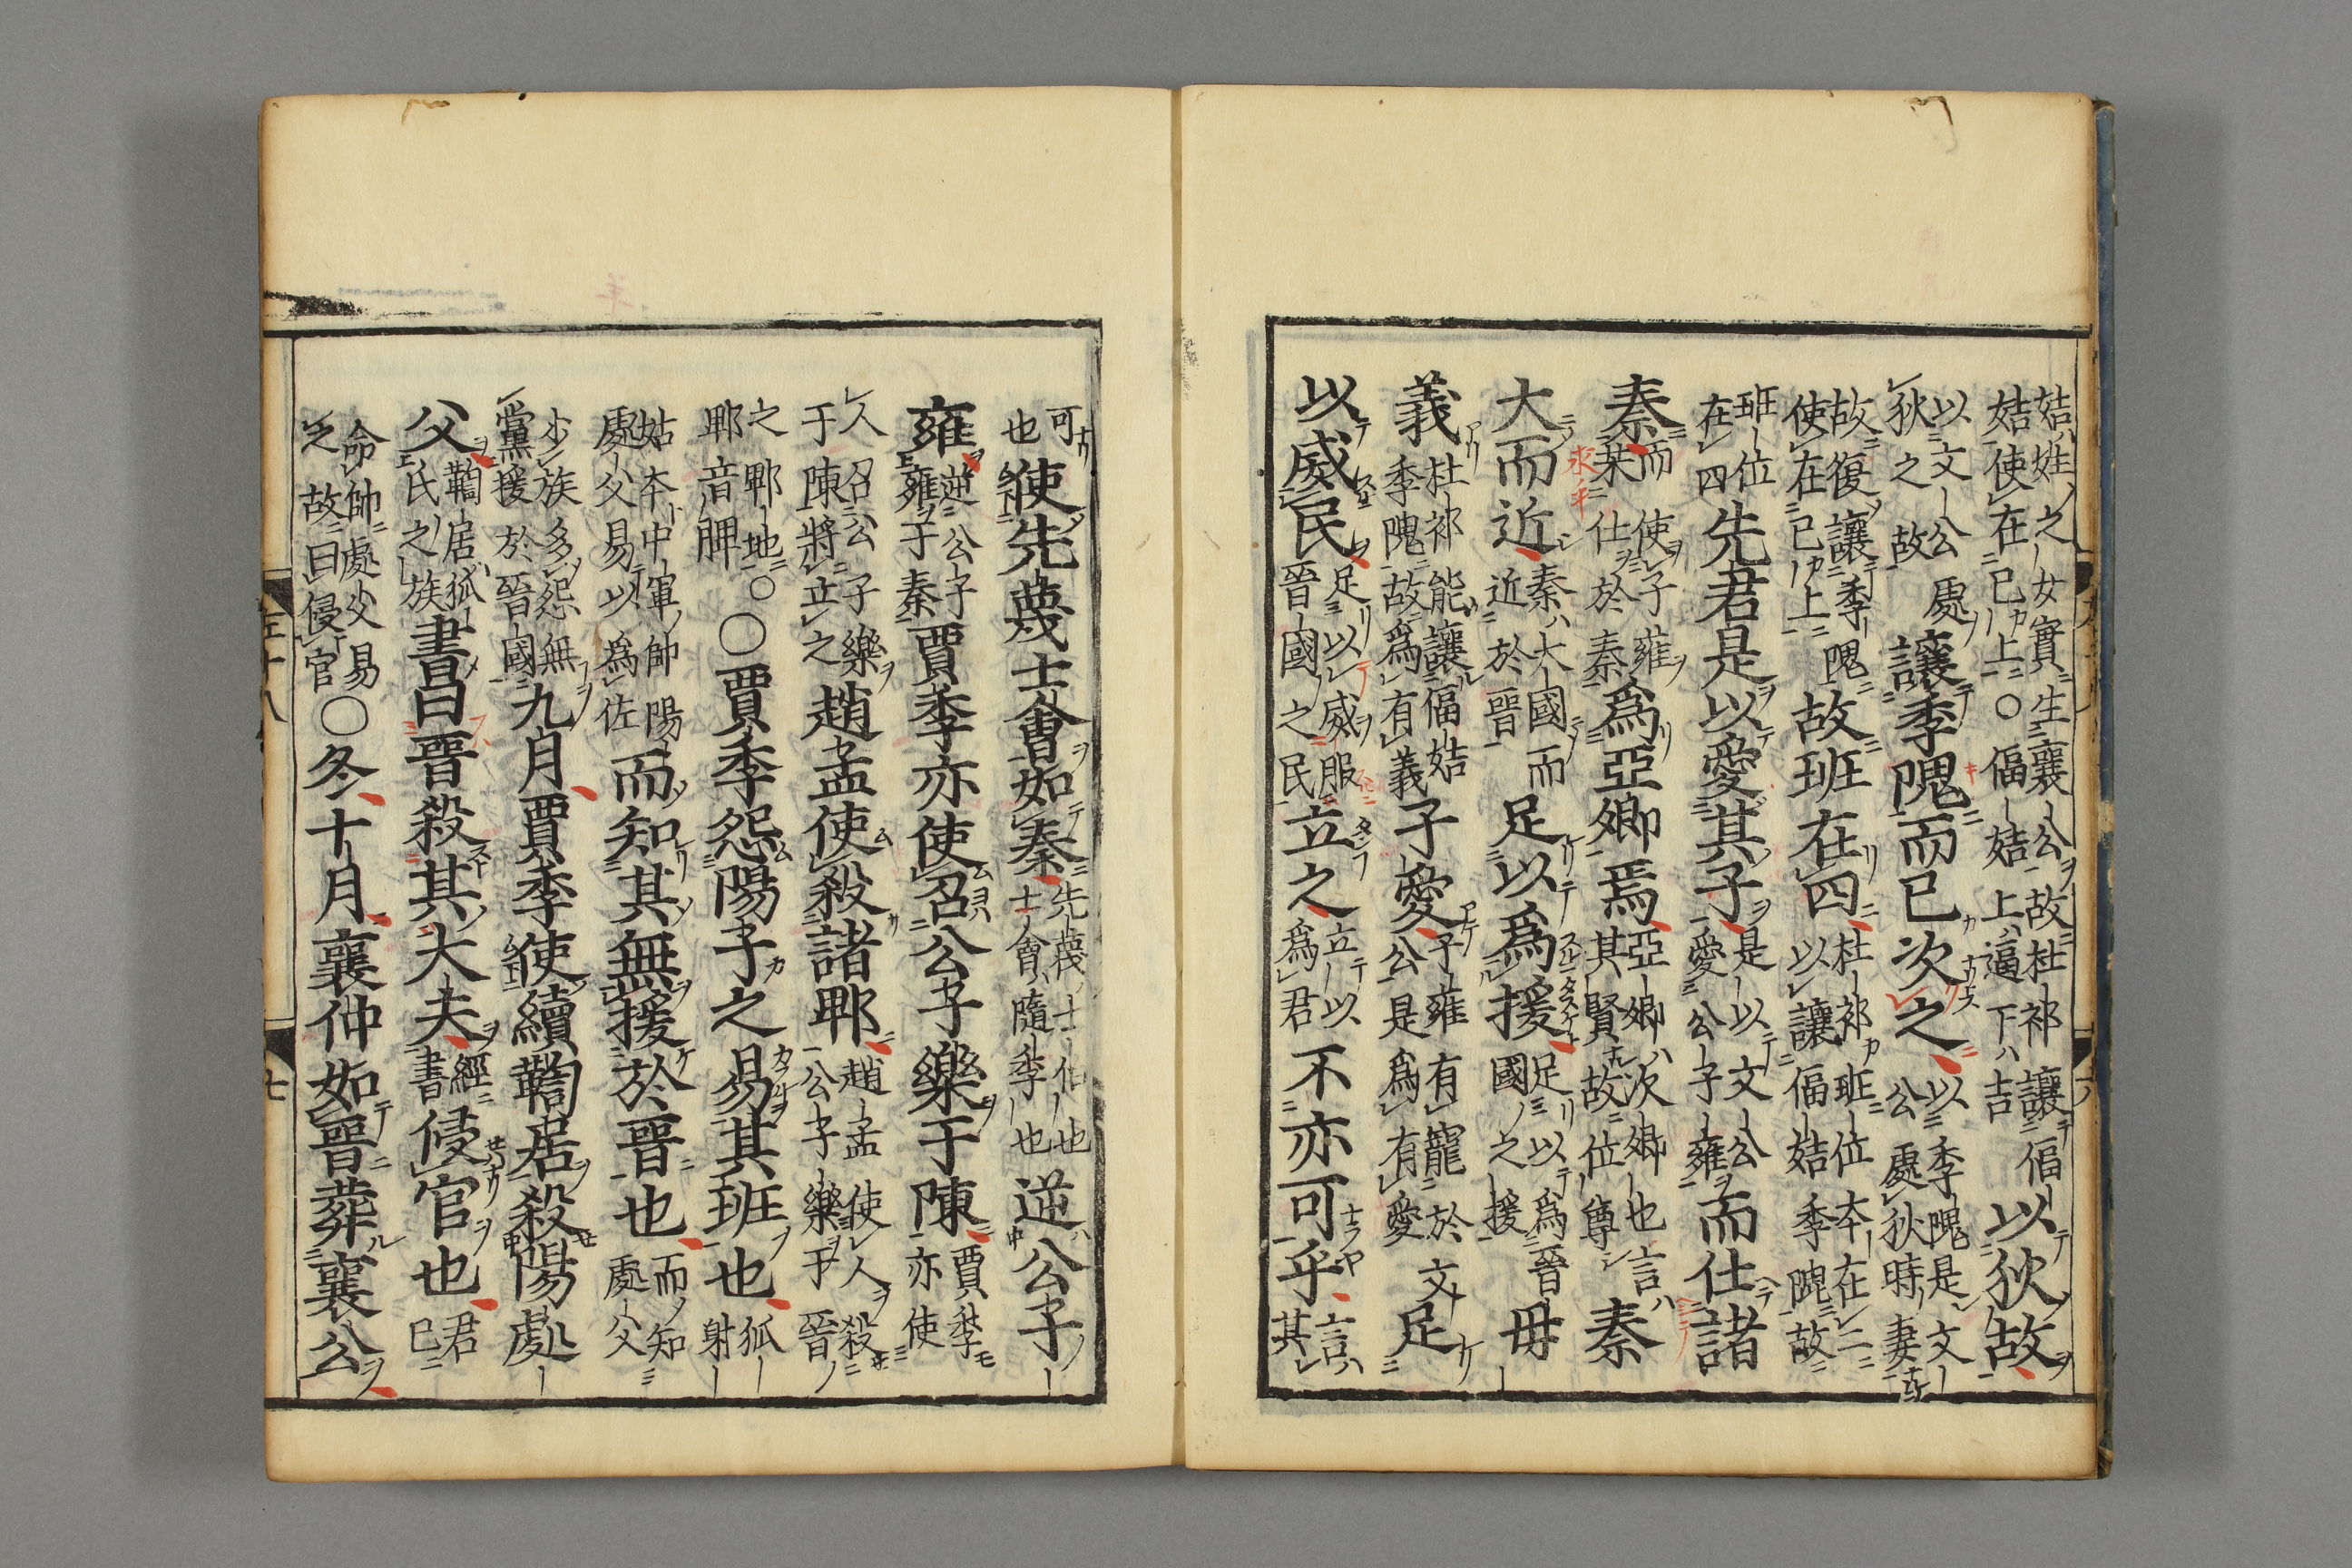 姞姓之女實生襄公故杜祁讓偪
姞使在己上〇偪姞上逼下吉
以狄故
以文公處
狄之故
讓季隗而己次之
以季隗是文
公處狄時妻
故復讓季隗
使在己上
故班在四
杜祁班位本在二
以讓偪姞季隗故
班位
在四
先君是以愛其子
是以文公
愛公子雍
而仕諸
秦
而
某
使子雍
仕於秦
爲亞卿焉
亞卿次卿也言
其賢故位尊
秦
大而近
秦大國而
近於晉
足以爲援
足以爲晉
國之援
毋
義
杜祁能讓偪姞
季隗故爲有義
子愛
子雍有寵於文
公是爲有愛
足
以威民
足以威服
晉國之民
立之
立以
爲君
不亦可乎
言
其
可
也
使先蔑士會如秦
先蔑士伯也
士會隨季也
逆公子
雍
逆公子
雍于秦
賈季亦使召公子樂于陳
賈季
亦使
人召公子樂
于陳將立之
趙孟使殺諸郫
趙孟使人殺
公子樂于晉
之郫地
郫音脾
〇
〇賈季怨陽子之易其班也
狐
射
姑本中軍帥陽
處父易以爲佐
而知其無援於晉也
而知
處父
少族多怨無
黨援於晉國
九月賈季使續鞫居殺陽處
父
鞫居狐
氏之族
書曰晉殺其大夫
經
書
侵官也
君
已
命帥處父易
之故曰侵官
〇冬十月襄仲如晉葬襄公